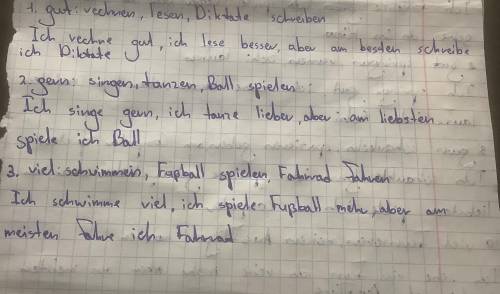 1. gut: rechnen, lesen, Diktate schreiben
Ich rechne gut, ich lese besser, aber am besten schreibe
ich Diktate
2. gern: singen, tanzen, Ball spielen
Ich singe gern, ich tanze lieber, aber am liebsten
spiele ich Ball
3. viel: schwimmen, Fußball spielen, Fahrrad fahren
Ich schwimme viel, ich spiele Fußball mehr, aber am
meisten fahre ich Fahrrad